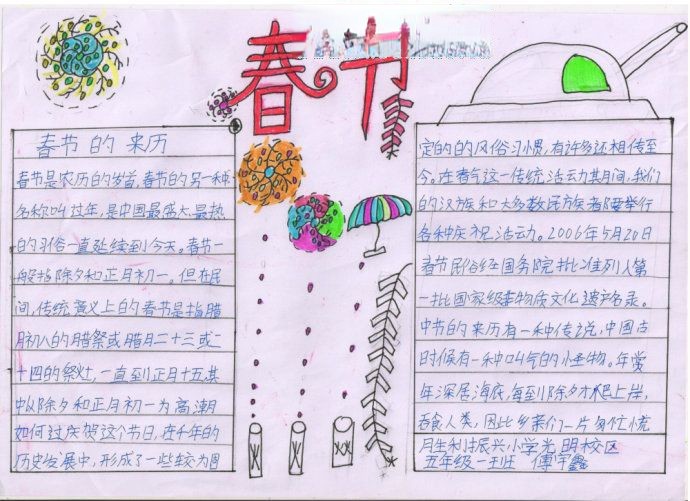 春节
春节的来历
春节是农历的岁首,春节的另一种
名称叫过年,是中国最盛大、最热
的习俗一直延续到今天。春节一
般指除夕和正月初一。但在民
间,传统意义上的春节是指腊
月初八的腊祭或腊月二十三或二
十四的祭灶,一直到正月十五,其
中以除夕和正月初一为高潮
如何过庆贺这个节日,在千年的
历史发展中,形成了一些较为固
定的的风俗习惯,有许多还相传至
今。在春节这一传统活动其月间,我们
的汉族和大多数民族者都要举行
各种庆祝活动。2006年5月20日
春节民俗经国务院批准列入第
一批国家级非物质文化遗产名录。
中节的来历有一种传说,中国古
时候有一种叫气的小怪物。年
年深居海底,每到除夕才爬上岸,
吞食人类,因此乡亲们一片匆忙慌
月生利振兴小学光明校区
五年级一班 傅宇鑫